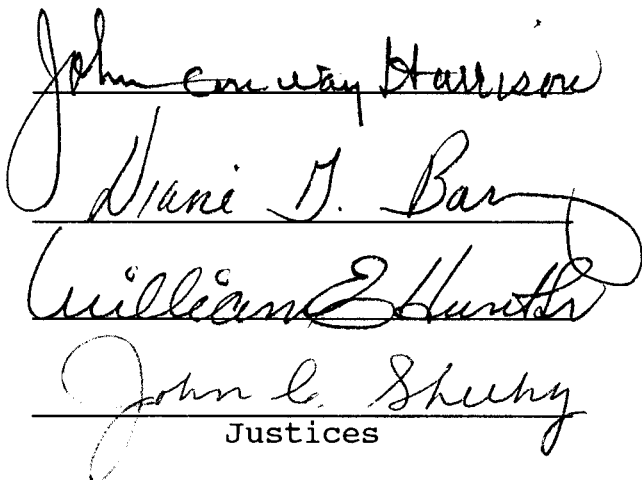 John Conway Harrison
Diane G. Barz
William E Hunter
John C. Sheehy
Justices